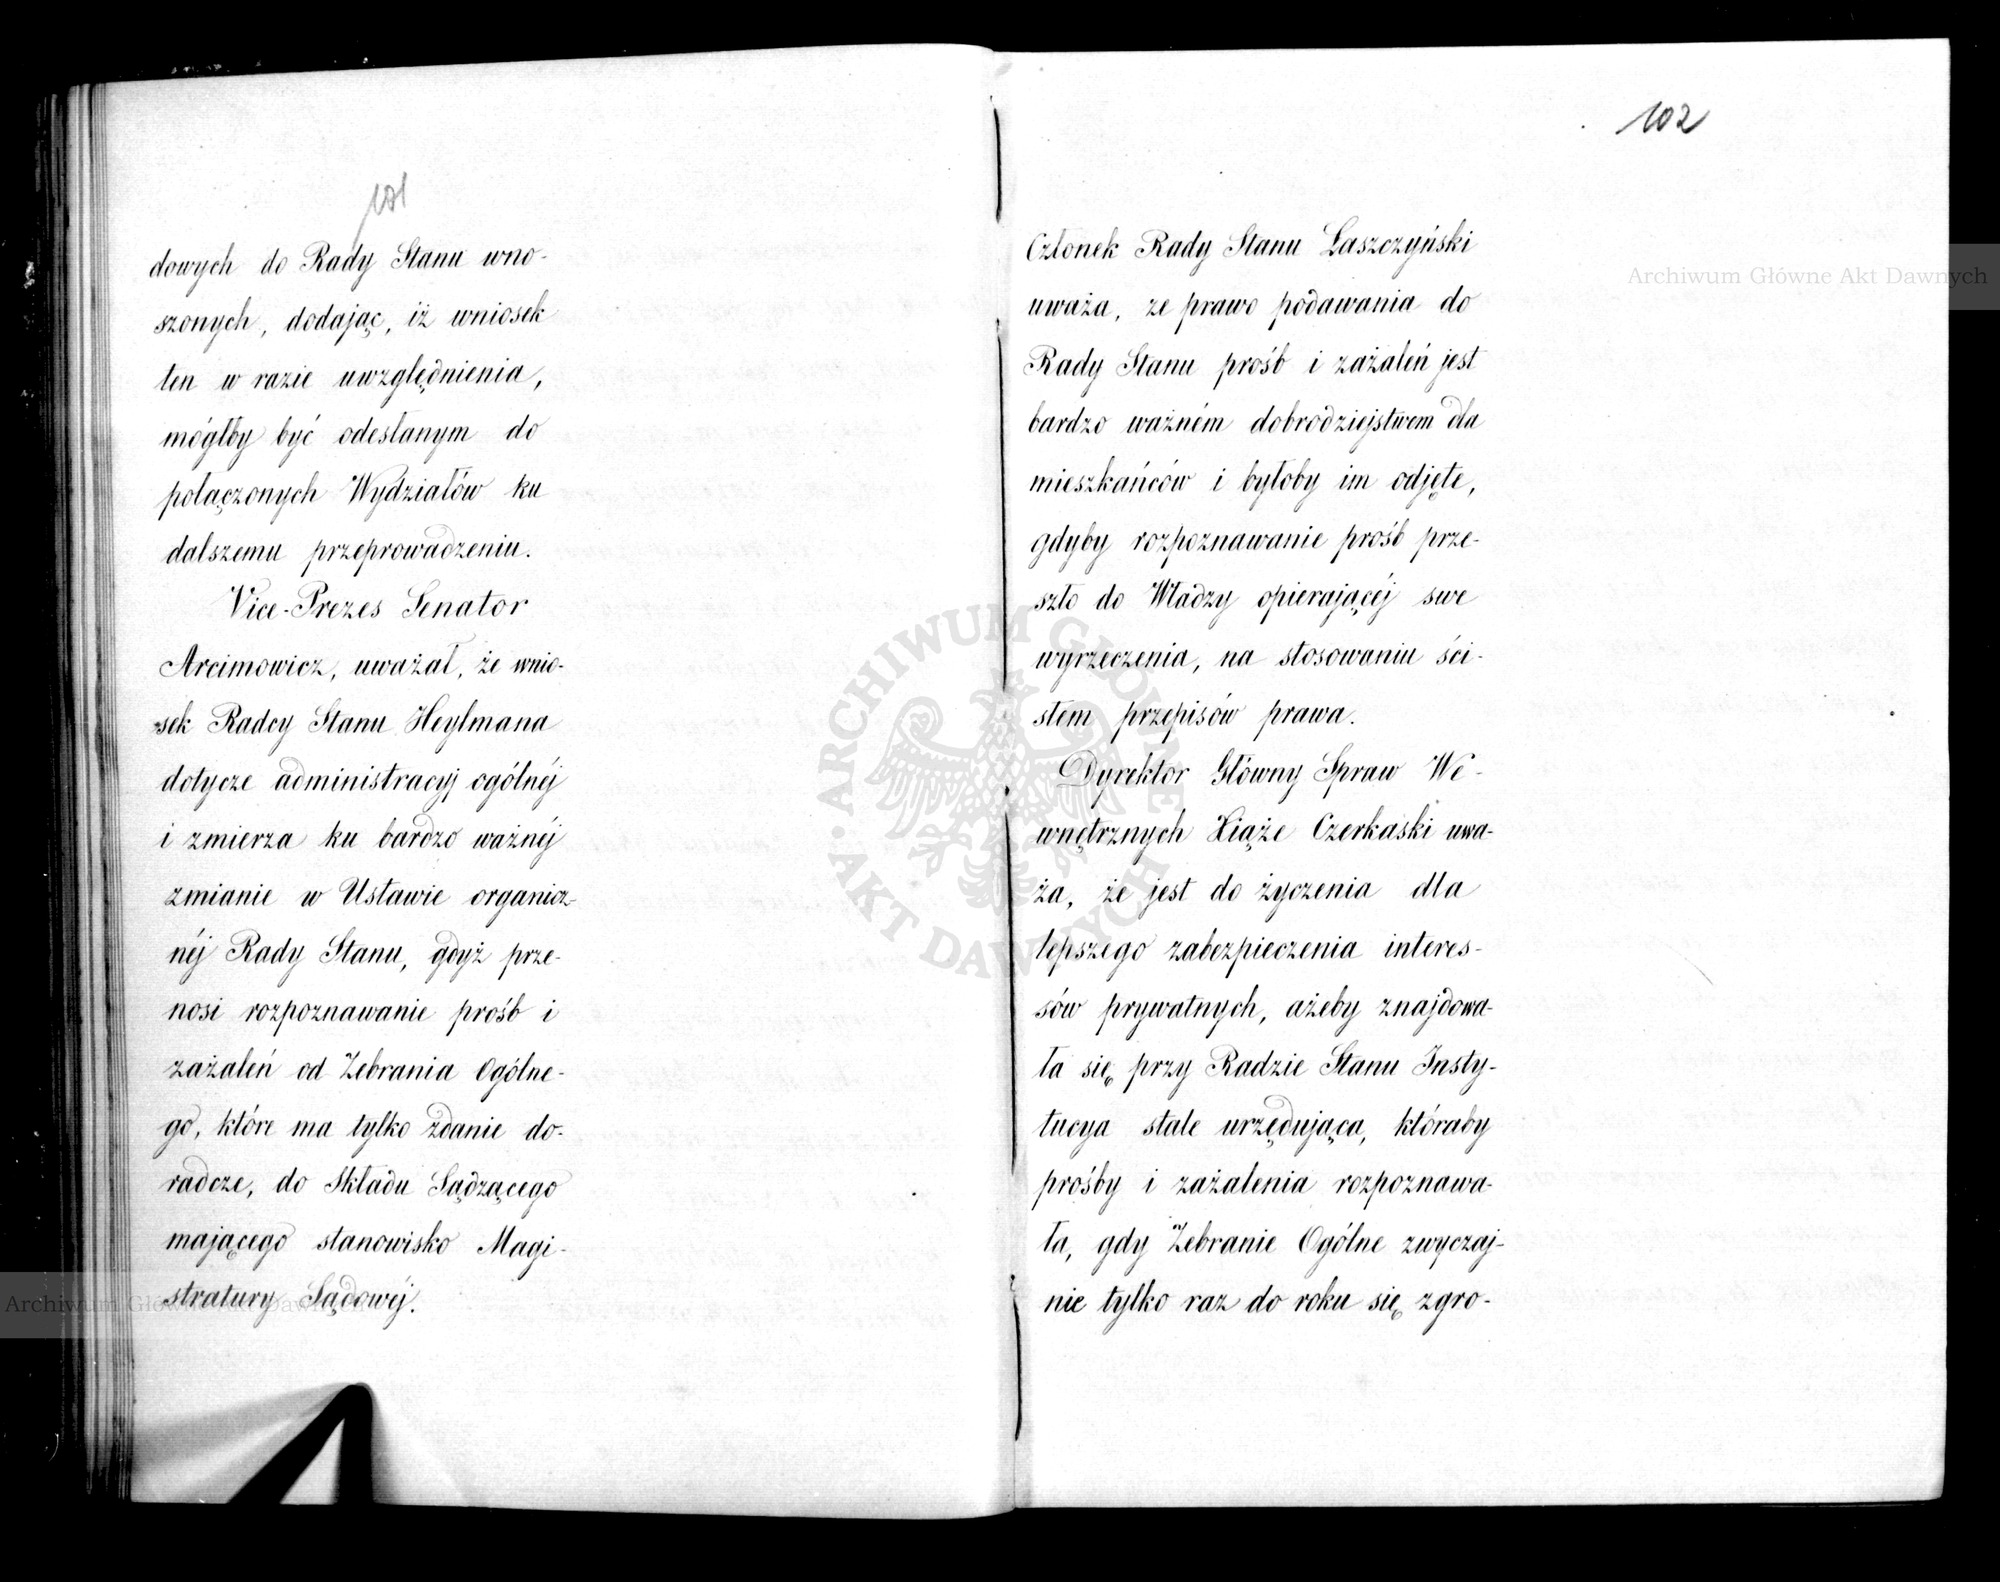 101
dowych do Rady Stanu wno-
szonych, dodając, iż wniosek
ten w razie uwzględnienia,
mógłby być odesłanym do
połączonych Wydziałów ku
dalszemu przeprowadzeniu.
Vice-Prezes Senator
Arcimowicz, uważał, że wnio-
sek Radcy Stanu Heylmana
dotycze administracyj ogólnéj
i zmierza ku bardzo ważnéj
zmianie w Ustawie organicz-
néj Rady Stanu, gdyż prze-
nosi rozpoznawanie prośb i
zażaleń od Zebrania Ogólne-
go, które ma tylko zdanie do-
radcze, do Składu Sądzącego
mającego stanowisko Magi-
stratury Sądowéj.
102
Członek Rady Stanu Łaszczyński
uważa, ze prawo podawania do
Rady Stanu prośb i zażaleń jest
bardzo ważném dobrodziejstwem dla
mieszkańców i byłoby im odjęte,
gdyby rozpoznawanie prośb prze-
szło do Władzy opierającéj swe
wyrzeczenia, na stosowaniu ści-
słem przepisów prawa.
Dyrektor Główny Spraw We-
wnętrznych Xiąże Czerkaski uwa-
ża, że jest do życzenia dla
lepszego zabezpieczenia interes-
sów prywatnych, ażeby znajdowa-
ła się przy Radzie Stanu Insty-
tucya stale urzędująca, któraby
prośby i zażalenia rozpoznawa-
ła, gdy Zebranie Ogólne zwyczaj-
nie tylko raz do roku się zgro-
Archiwum Główne Akt Dawnych
ARCHIWUM GŁÓWNE AKT DAWNYCH
Archiwum Główne Akt Dawnych